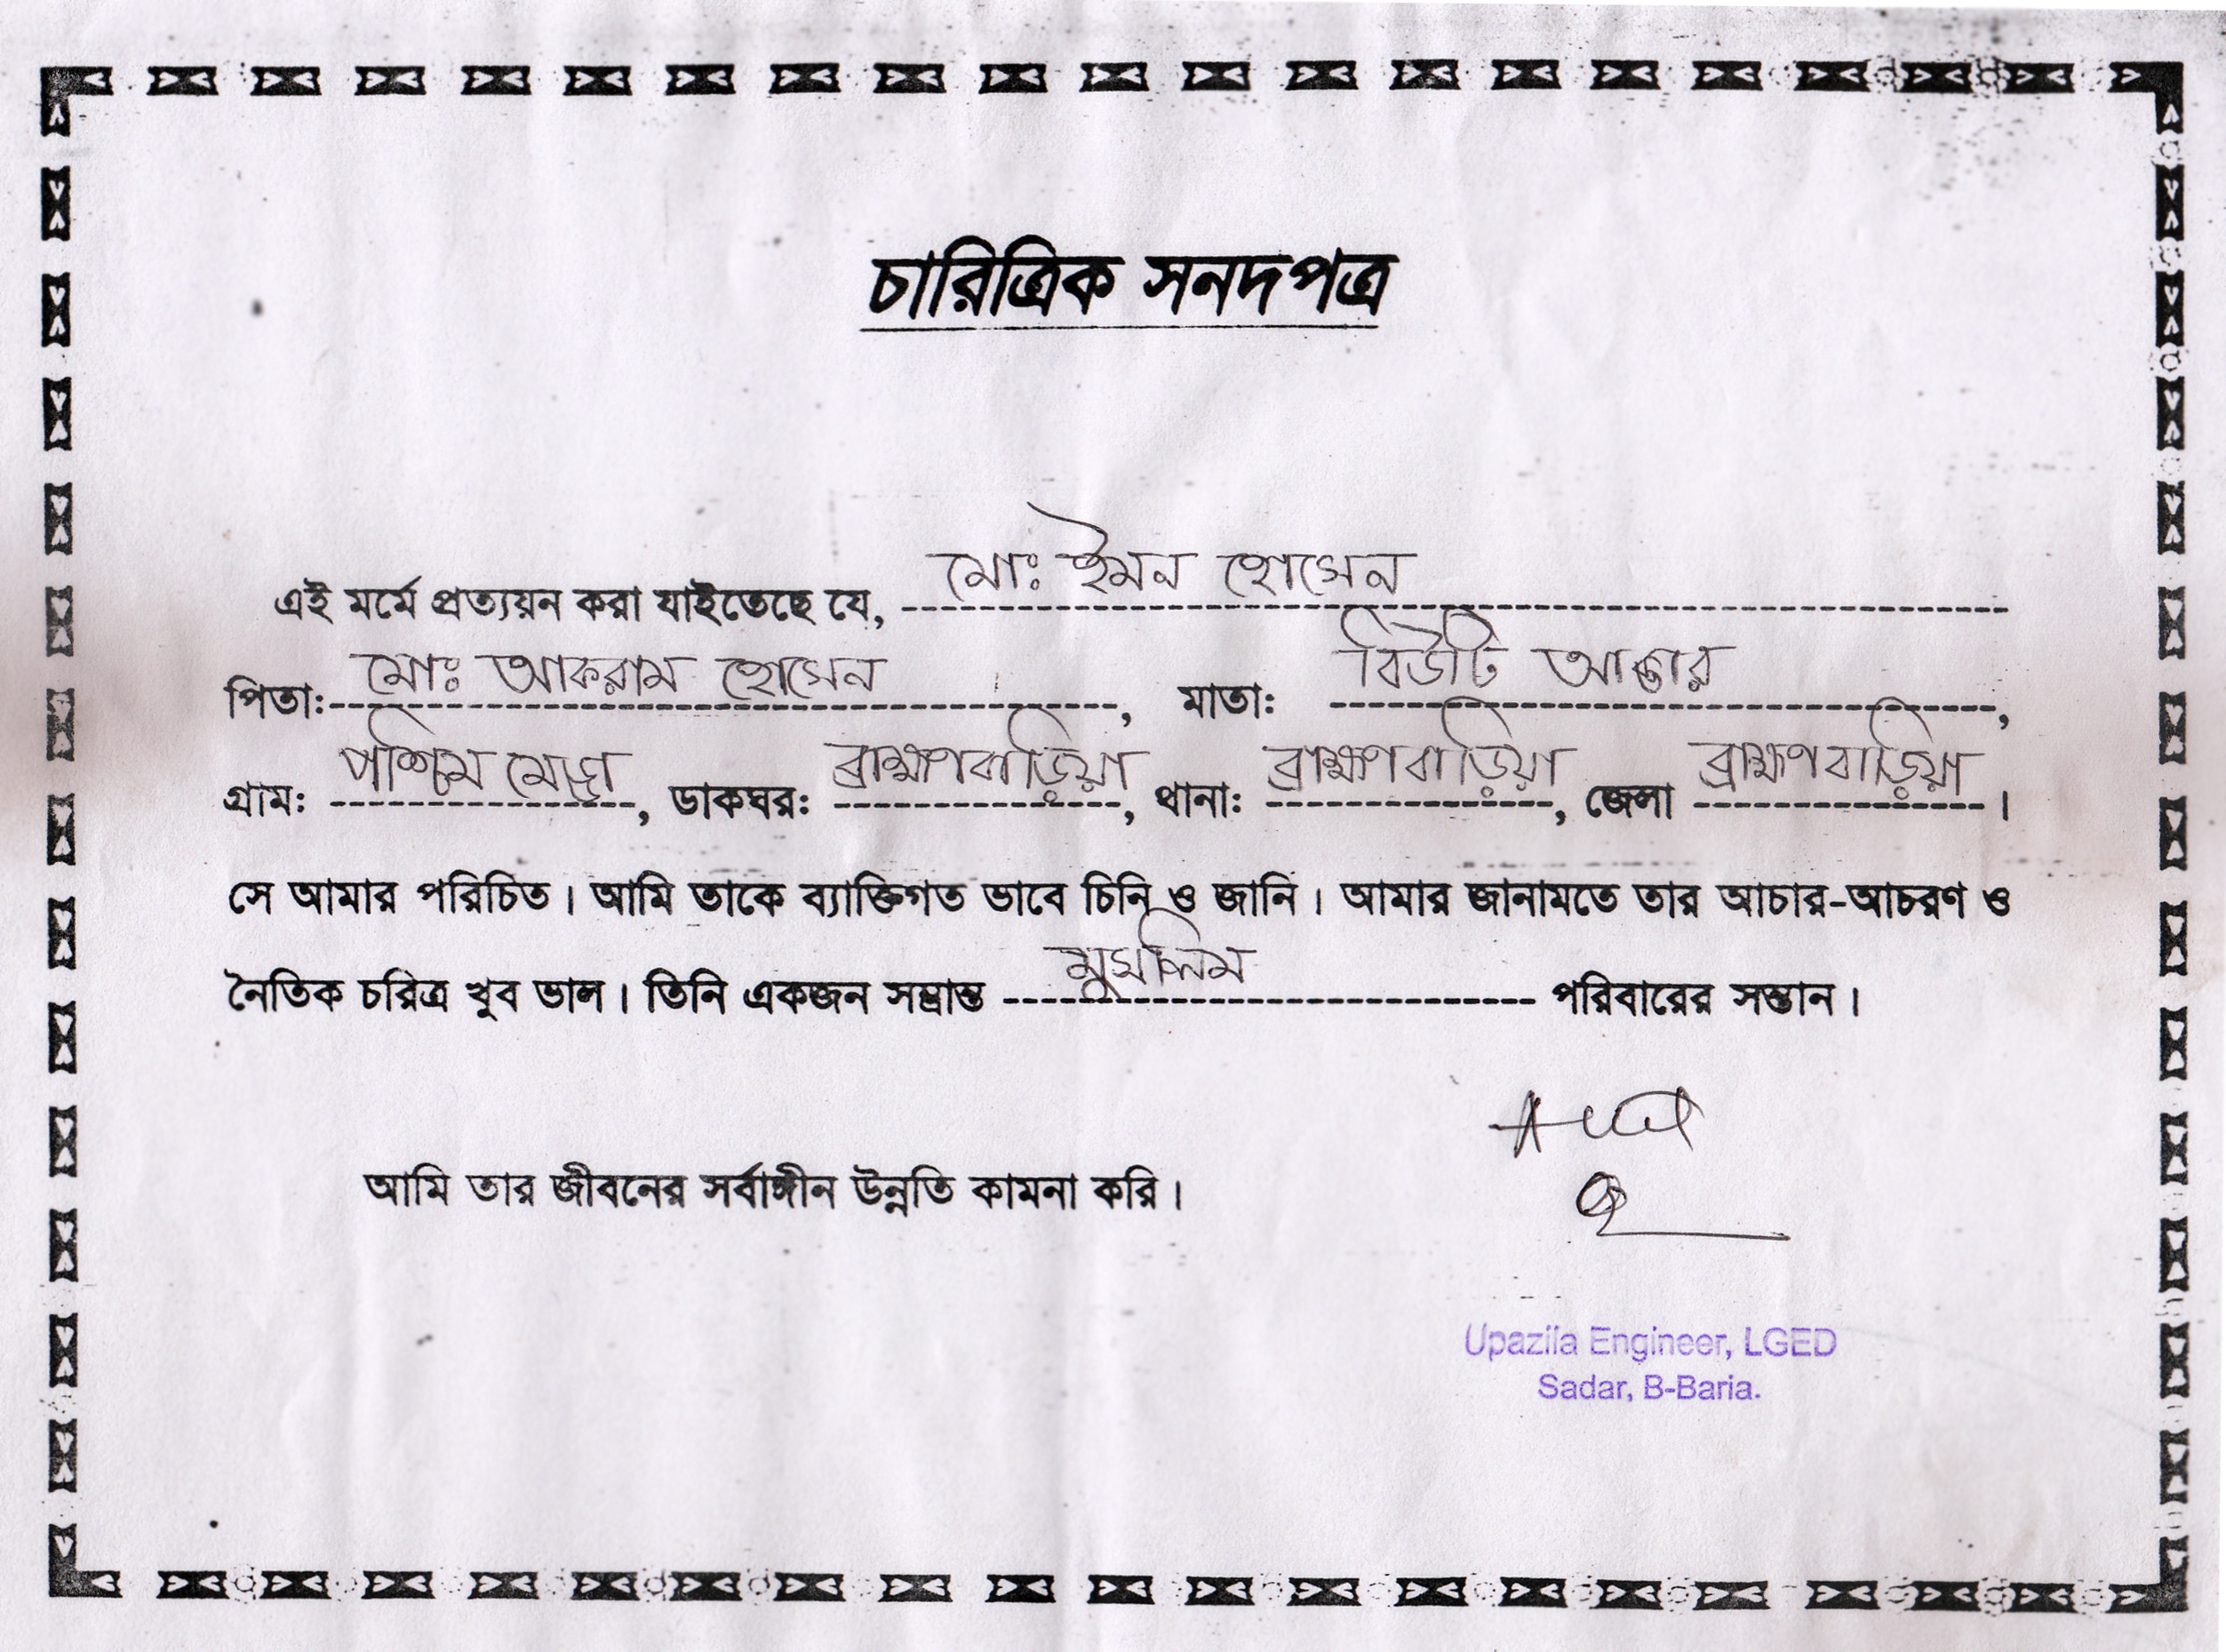 চারিত্রিক সনদপত্র
এই মর্মে প্রত্যয়ন করা যাইতেছে যে, মোঃ ইমন হোসেন
পিতাঃ মোঃ আকরাম হোসেন, মাতাঃ বিউটি আক্তার,
গ্রামঃ পশ্চিম মেড্ডা, ডাকঘরঃ ব্রাহ্মণবাড়িয়া, থানাঃ ব্রাহ্মণবাড়িয়া, জেলা ব্রাহ্মণবাড়িয়া।
সে আমার পরিচিত। আমি তাকে ব্যাক্তিগত ভাবে চিনি ও জানি। আমার জানামতে তার আচার-আচরণ ও
নৈতিক চরিত্র খুব ভাল। তিনি একজন সম্ভ্রান্ত মুসলিম পরিবারের সন্তান।
আমি তার জীবনের সর্বাঙ্গীন উন্নতি কামনা করি।
Upazila Engineer, LGED
Sadar, B-Baria.